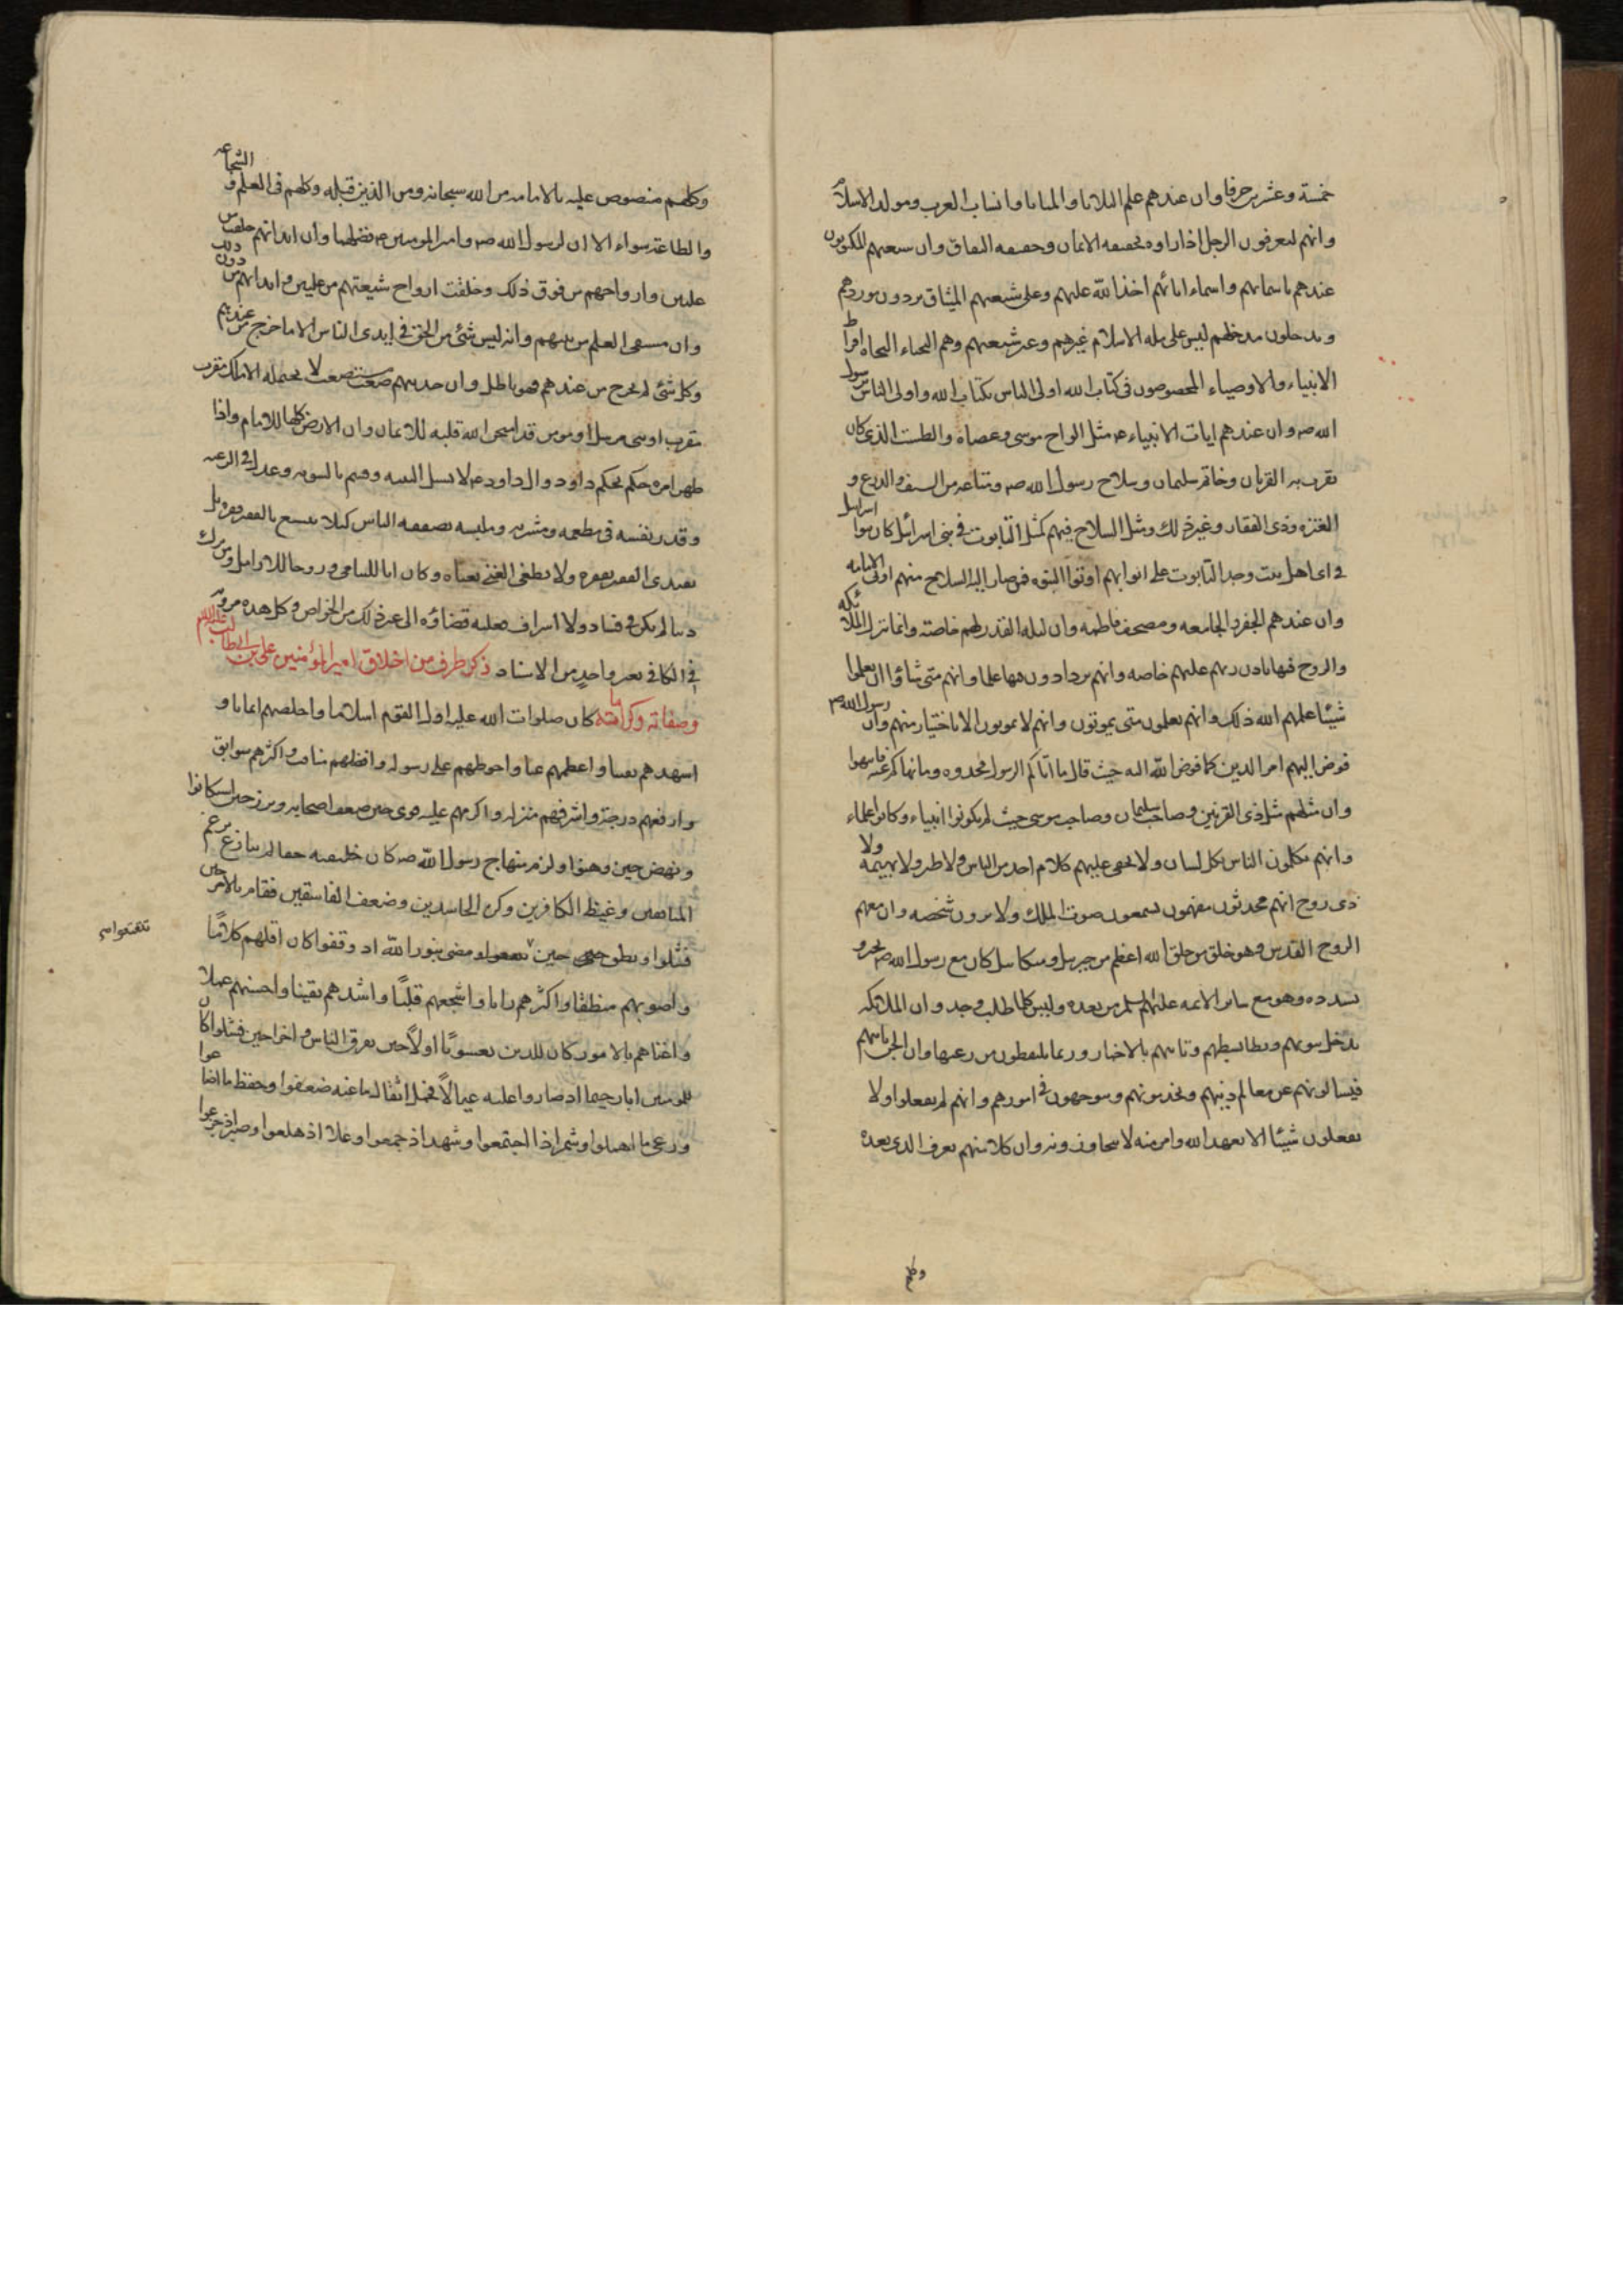 خمسة وعشرين حرفا وان عندهم علم البلايا والمنايا وانساب العرب ومولد الاسلام
وانهم ليعرفون الرجل اذا راوه بحقيقه الايمان وحقيقه النفاق وان شيعتهم لمكتوبون
عندهم باسمائهم واسماء ابائهم اخذ الله عليهم وعلى شيعتهم الميثاق يردون موردهم
ويدخلون مدخلهم ليس على مله الاسلام غيرهم وغير شيعتهم وهم النجباء النجاه افراط
الانبياء والاوصياء المخصوصون فى كتاب الله اولى الناس بكتاب الله واولى الناس برسول
الله صه وان عندهم ايات الانبياء عه مثل الواح موسى وعصاه والطست الذى كان
يقرب به القربان وخاتم سليمان وسلاح رسول الله صه ومتاعه من السيف والدرع و
العنزه وذى الفقار وغير ذلك ومثل السلاح فيهم كمثل التابوت فى بنى اسرائل كان بنوا اسرايل
فى اى اهل بيت وجد التابوت على ابوابهم اوتوا النبوه فمن صار اليه السلاح منهم اوتى الامامه
وان عندهم الجفر والجامعه ومصحف فاطمه وان ليله القدر لهم خاصة وانما تنزل الملائكه
والروح فيها باذن ربهم عليهم خاصه وانهم يزدادون فيها علما وانهم متى شاؤا ان يعلموا
شيئا علمهم الله ذلك وانهم يعلمون متى يموتون وانهم لا يموتون الا باختيار منهم وان رسول الله صم
فوض اليهم امر الدين كما فوض الله اليه حيث قال ما اتاكم الرسول فخذوه وما نهاكم عنه فانتهوا
وان مثلهم مثل ذى القرنين وصاحب سليمان وصاحب موسى حيث لم يكونوا انبياء وكانوا علماء
وانهم يكلمون الناس بكل لسان ولا يخفى عليهم كلام احد من الناس ولا طير ولا بهيمه ولا
ذى روح انهم محدثون مفهمون يسمعون صوت الملك ولا يرون شخصه وان معهم
الروح القدس وهو خلق من خلق الله اعظم من جبريل وميكايل كان مع رسول الله صه يخبره و
يسدده وهو مع ساير الائمه عليهم السلم من بعده وليس كلما طلب وجد وان الملائكه
تدخل بيوتهم وتطا بسطهم وتاتيهم بالاخبار وربما يلتقطون من زغبها وان الجن ياتيهم
فيسالونهم عن معالم دينهم ويخدمونهم ويتوجهون فى امورهم وانهم لم يفعلوا ولا
يفعلون شيئا الا بعهد الله وامر منه لا يتجاوزونه وان كلا منهم يعرف الذى بعده
وكلهم
وكلهم منصوص عليه بالامامه من الله سبحانه ومن الذين قبله وكلهم فى العلم و الشجاعه
والطاعة سواء الا ان لرسول الله صه وامير المومنين عه فضلهما وان ابدانهم خلقت من
عليين وارواحهم من فوق ذلك وخلقت ارواح شيعتهم من عليين وابدانهم من دون ذلك
وان مستقى العلم من بيتهم وانه ليس شئ من الحق فى ايدى الناس الا ما خرج من عندهم
وكل شئ لم يخرج من عندهم فهو باطل وان حديثهم صعب مستصعب لا يحتمله الا ملك مقرب
مقرب او نبى مرسل او مومن قد امتحن الله قلبه للايمان وان الارض كلها للامام واذا
ظهر امره حكم بحكم داود وال داود عه لا يسل البينه وقسم بالسويه وعدل فى الرعيه
وقدر نفسه فى مطعمه ومشربه وملبسه بضعفه الناس كيلا يتبيغ بالفقير فقره بل
يقتدى الفقير بفقره ولا يطغى الغنى بغناه وكان ابا لليتامى وزوجا للارامل ومن ترك
دينا لم يكن فى فساد ولا اسراف فعليه قضاؤه الى غير ذلك من الخواص وكل هذه مروية
فى الكافى بغير واحد من الاسناد ذكر طرف من اخلاق امير المؤمنين على بن ابيطالب عليه السلام
وصفاته وكراماته كان صلوات الله عليه اول القوم اسلاما واخلصهم ايمانا و
اشدهم يقينا واعظمهم عنا واحوطهم على رسوله وافضلهم مناقب واكثرهم سوابق
وارفعهم درجة واشرفهم منزله واكرمهم عليه قوى حين ضعف اصحابه وبرز حين استكانوا
ونهض حين وهنوا ولزم منهاج رسول الله صه كان خليفته حقا لم ينازع برغم
المنافقين وغيظ الكافرين وكره الحاسدين وضعف الفاسقين فقام بالامر حين
فشلوا ونطق حين تتعتعوا ومضى بنور الله اذ وقفوا كان اقلهم كلاما
تتعتعوا
واصوبهم منطقا واكثرهم رايا واشجعهم قلبا واشدهم يقينا واحسنهم عملا
واغناهم بالامور كان للدين يعسوبا اولا حين تفرق الناس واخرا حين فشلوا كان
للمومنين ابا رحيما اذ صاروا عليه عيالا فحمل اثقال ما عنه ضعفوا وحفظ ما اضاعوا
ورعى ما اهملوا وشمر اذا اجتمعوا وشهد اذ جمعوا وعلا اذ هلعوا وصبر اذ جزعوا